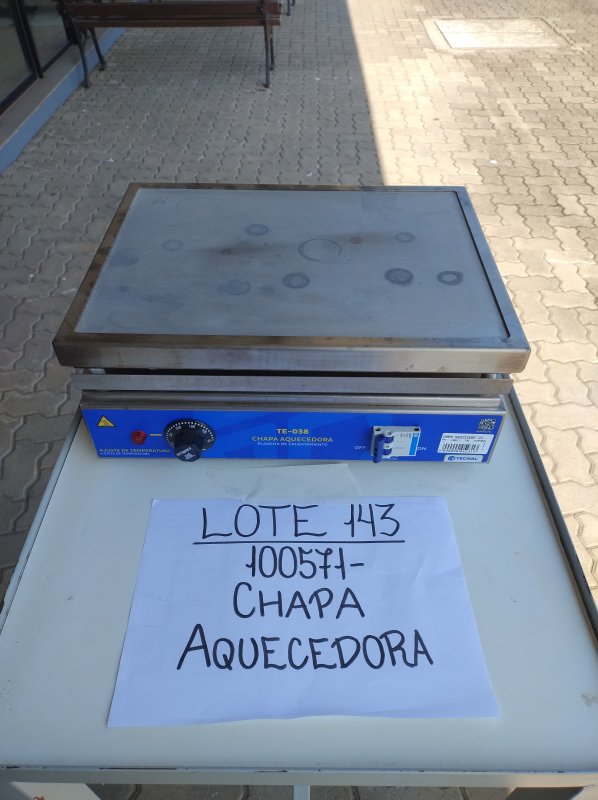 TE-038
CHAPA AQUECEDORA
PLANCHA DE CALENTAMIENTO
AJUSTE DE TEMPERATURA
AJUSTE DE TEMPERATURA
OFF
ON
CHAPA AQUECEDORA
TECNAL
LOTE 143
100571-
CHAPA
AQUECEDORA